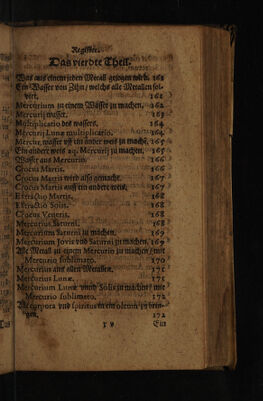 Register.
Das vierdte Theil.
Was aus einem jeden Metall gezogen wird. 161
Ein Wasser von Zihn/ welchs alle Metallen sol-
viert. 161
Mercurium zu einem Wasser zu machen. 162
Mercurij wasser. 163
Multiplicatio des wassers. 164
Mercurij Lunæ multiplicatio. 164
Mercur. wasser uff ein ander weis zu machē. 167
Ein anders weis aq. Mercurij zu machen. 167
Wasser aus Mercurio. 166
Crocus Martis. 166
Crocus Martis wird also gemacht. 167
Crocus Martis auff ein anders weis. 167
Extractio Martis. 168
Extractio Spiūs. 168
Crocus Veneris. 168
Mercurius Saturni. 168
Mercurium Saturni zu machen. 169
Mercurium Jovis und Saturni zu machen. 169
Alle Metall zu einem Mercurio zu machen/ mit
Mercurio sublimato. 170
Mercurius aus allen Metallen. 171
Mercurius Lunæ. 171
Mercurium Lunæ unnd Solis zu machen/ mit
Mercurio sublimato. 172
Alle corpora und spiritus in ein oleum zu brin-
gen. 172
x v Ein